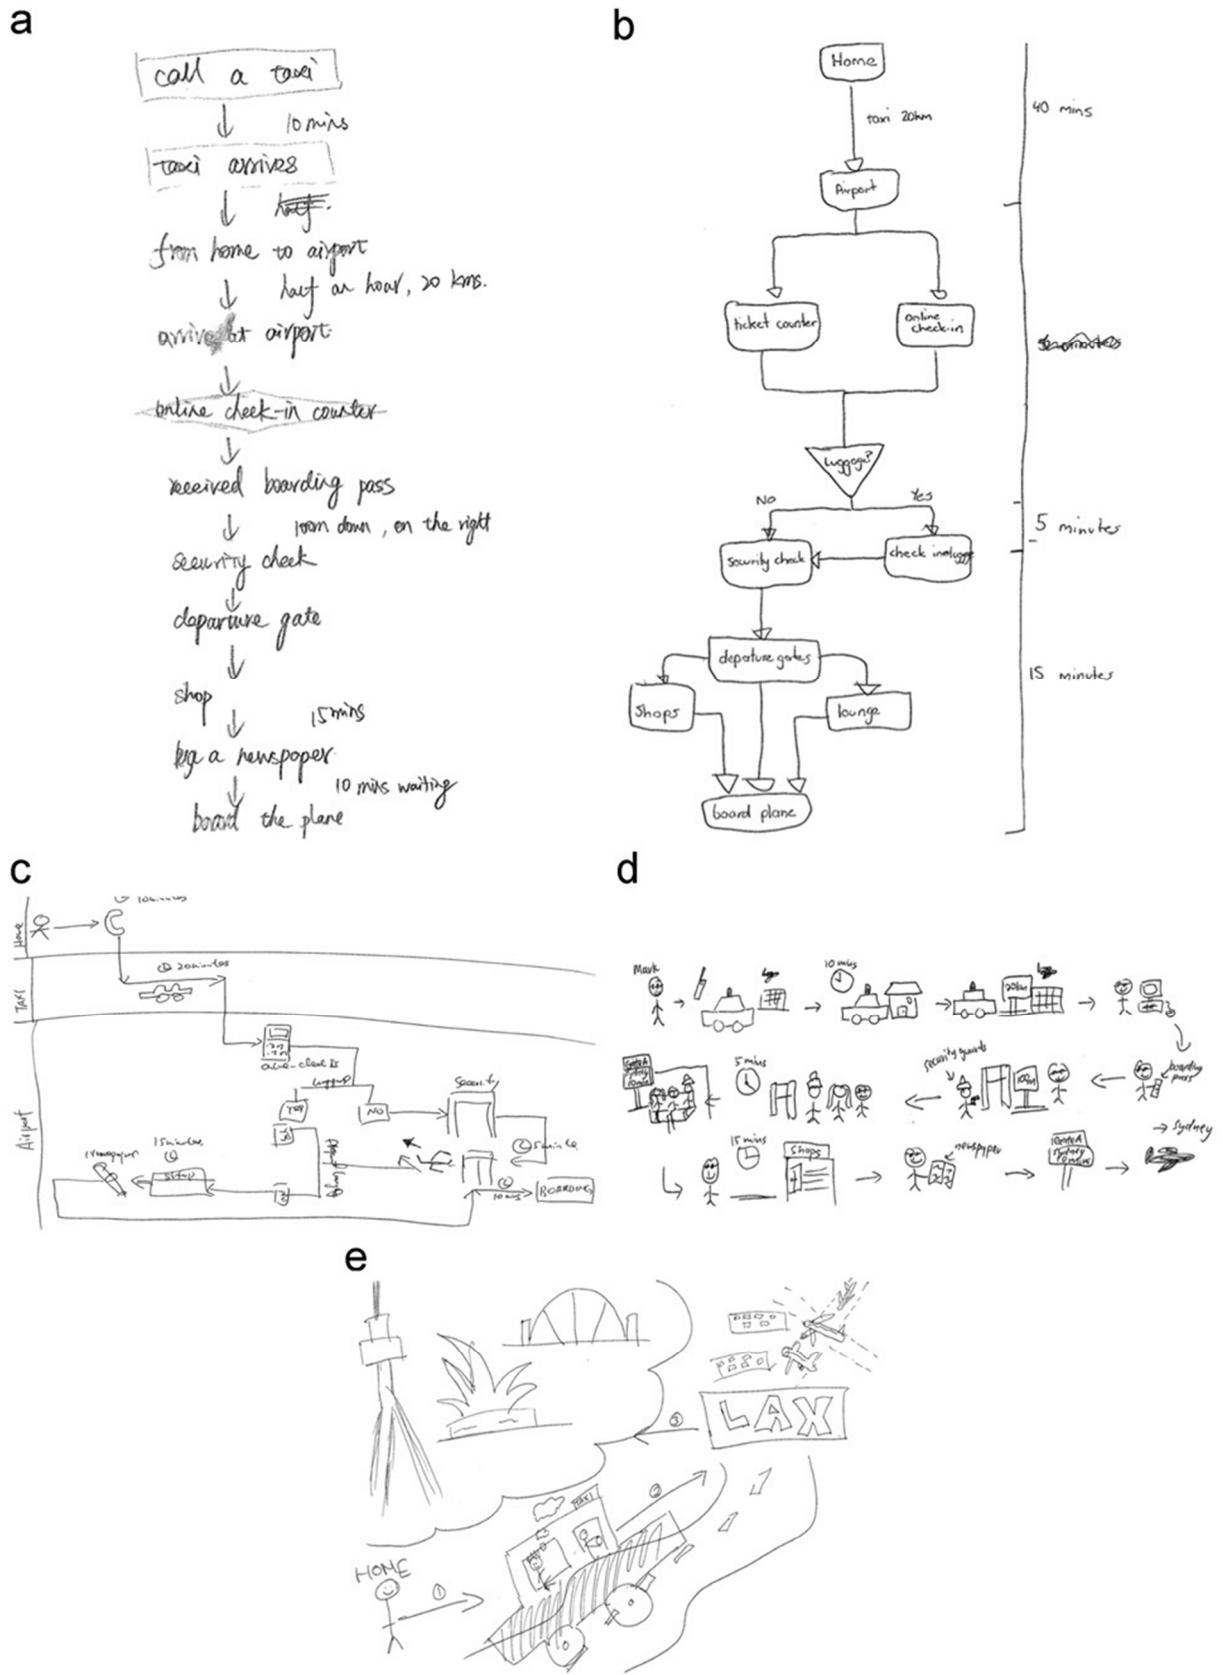 a
call a taxi
10 mins
taxi arrives
from home to airport
half an hour, 20 kms.
arrive at airport
online check-in counter
received boarding pass
100m down, on the right
security check
departure gate
shop
15 mins
a newspaper
10 mins waiting
board the plane
b
Home
40 mins
taxi 20km
Airport
ticket counter
online
check-in
Luggage?
No
Yes
5 minutes
security check
check in
departure gates
15 minutes
shops
lounge
board plane
c
Home
TAXI
20 minutes
Airport
luggage
Security
YES
NO
5 minute
15 minutes
newspaper
10 mins
BOARDING
d
Mark
10 mins
20km
5 mins
security guards
100m
boarding
pass
15 mins
Shops
newspaper
Sydney
→ Sydney
e
LAX
3
2
TAXI
HOME
1